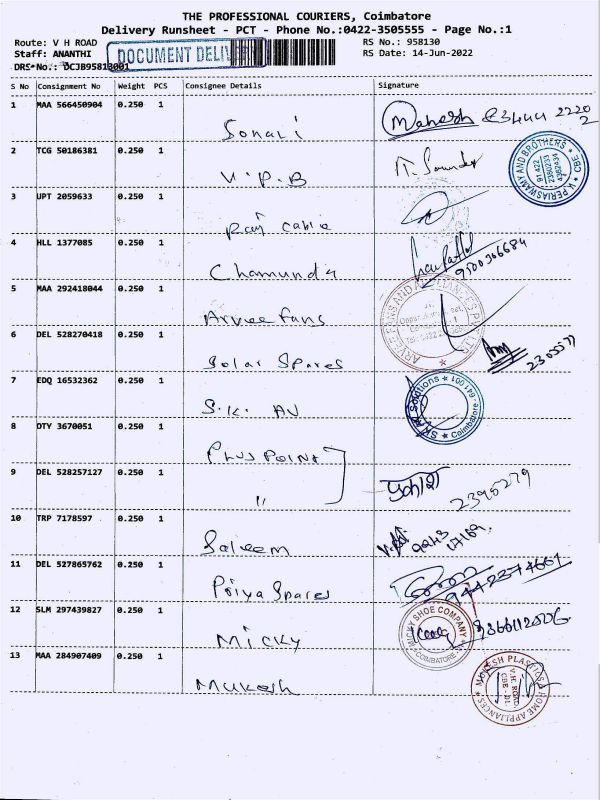 THE PROFESSIONAL COURIERS, Coimbatore
Delivery Runsheet - PCT - Phone No.:0422-3505555 - Page No.:1
Route: V H ROAD RS No.: 958130
Staff: ANANTHI RS Date: 14-Jun-2022
DOCUMENT DELI
DRS No.: DCJB95813001
S No Consignment No Weight PCS Consignee Details Signature
1 MAA 566450904 0.250 1
Sonali Mahesh
2 TCG 50186381 0.250 1
V.P.B
V. PERIASWAMY AND BROTHERS CBE
3 UPT 2059633 0.250 1
Raj Cable
4 HLL 1377085 0.250 1
Chamunda 9500366684
5 MAA 292418044 0.250 1
Arvee fans
ARVEE FANS AND APPLIANCES
6 DEL 528270418 0.250 1
Solar Spares 2305577
7 EDQ 16532362 0.250 1
S.K. AV
Solutions Coimbatore - 641 001
8 DTY 3670051 0.250 1
PLUS POINT
9 DEL 528257127 0.250 1
" प्रकाश
10 TRP 7178597 0.250 1
Saleem
11 DEL 527865762 0.250 1
Priya Spares 9442374661
12 SLM 297439827 0.250 1
MICKY
MICKY SHOE COMPANY COIMBATORE
13 MAA 284907409 0.250 1
Mukesh
MUKESH PLASTICS HOME APPLIANCES V.H. ROAD CBE - 01.